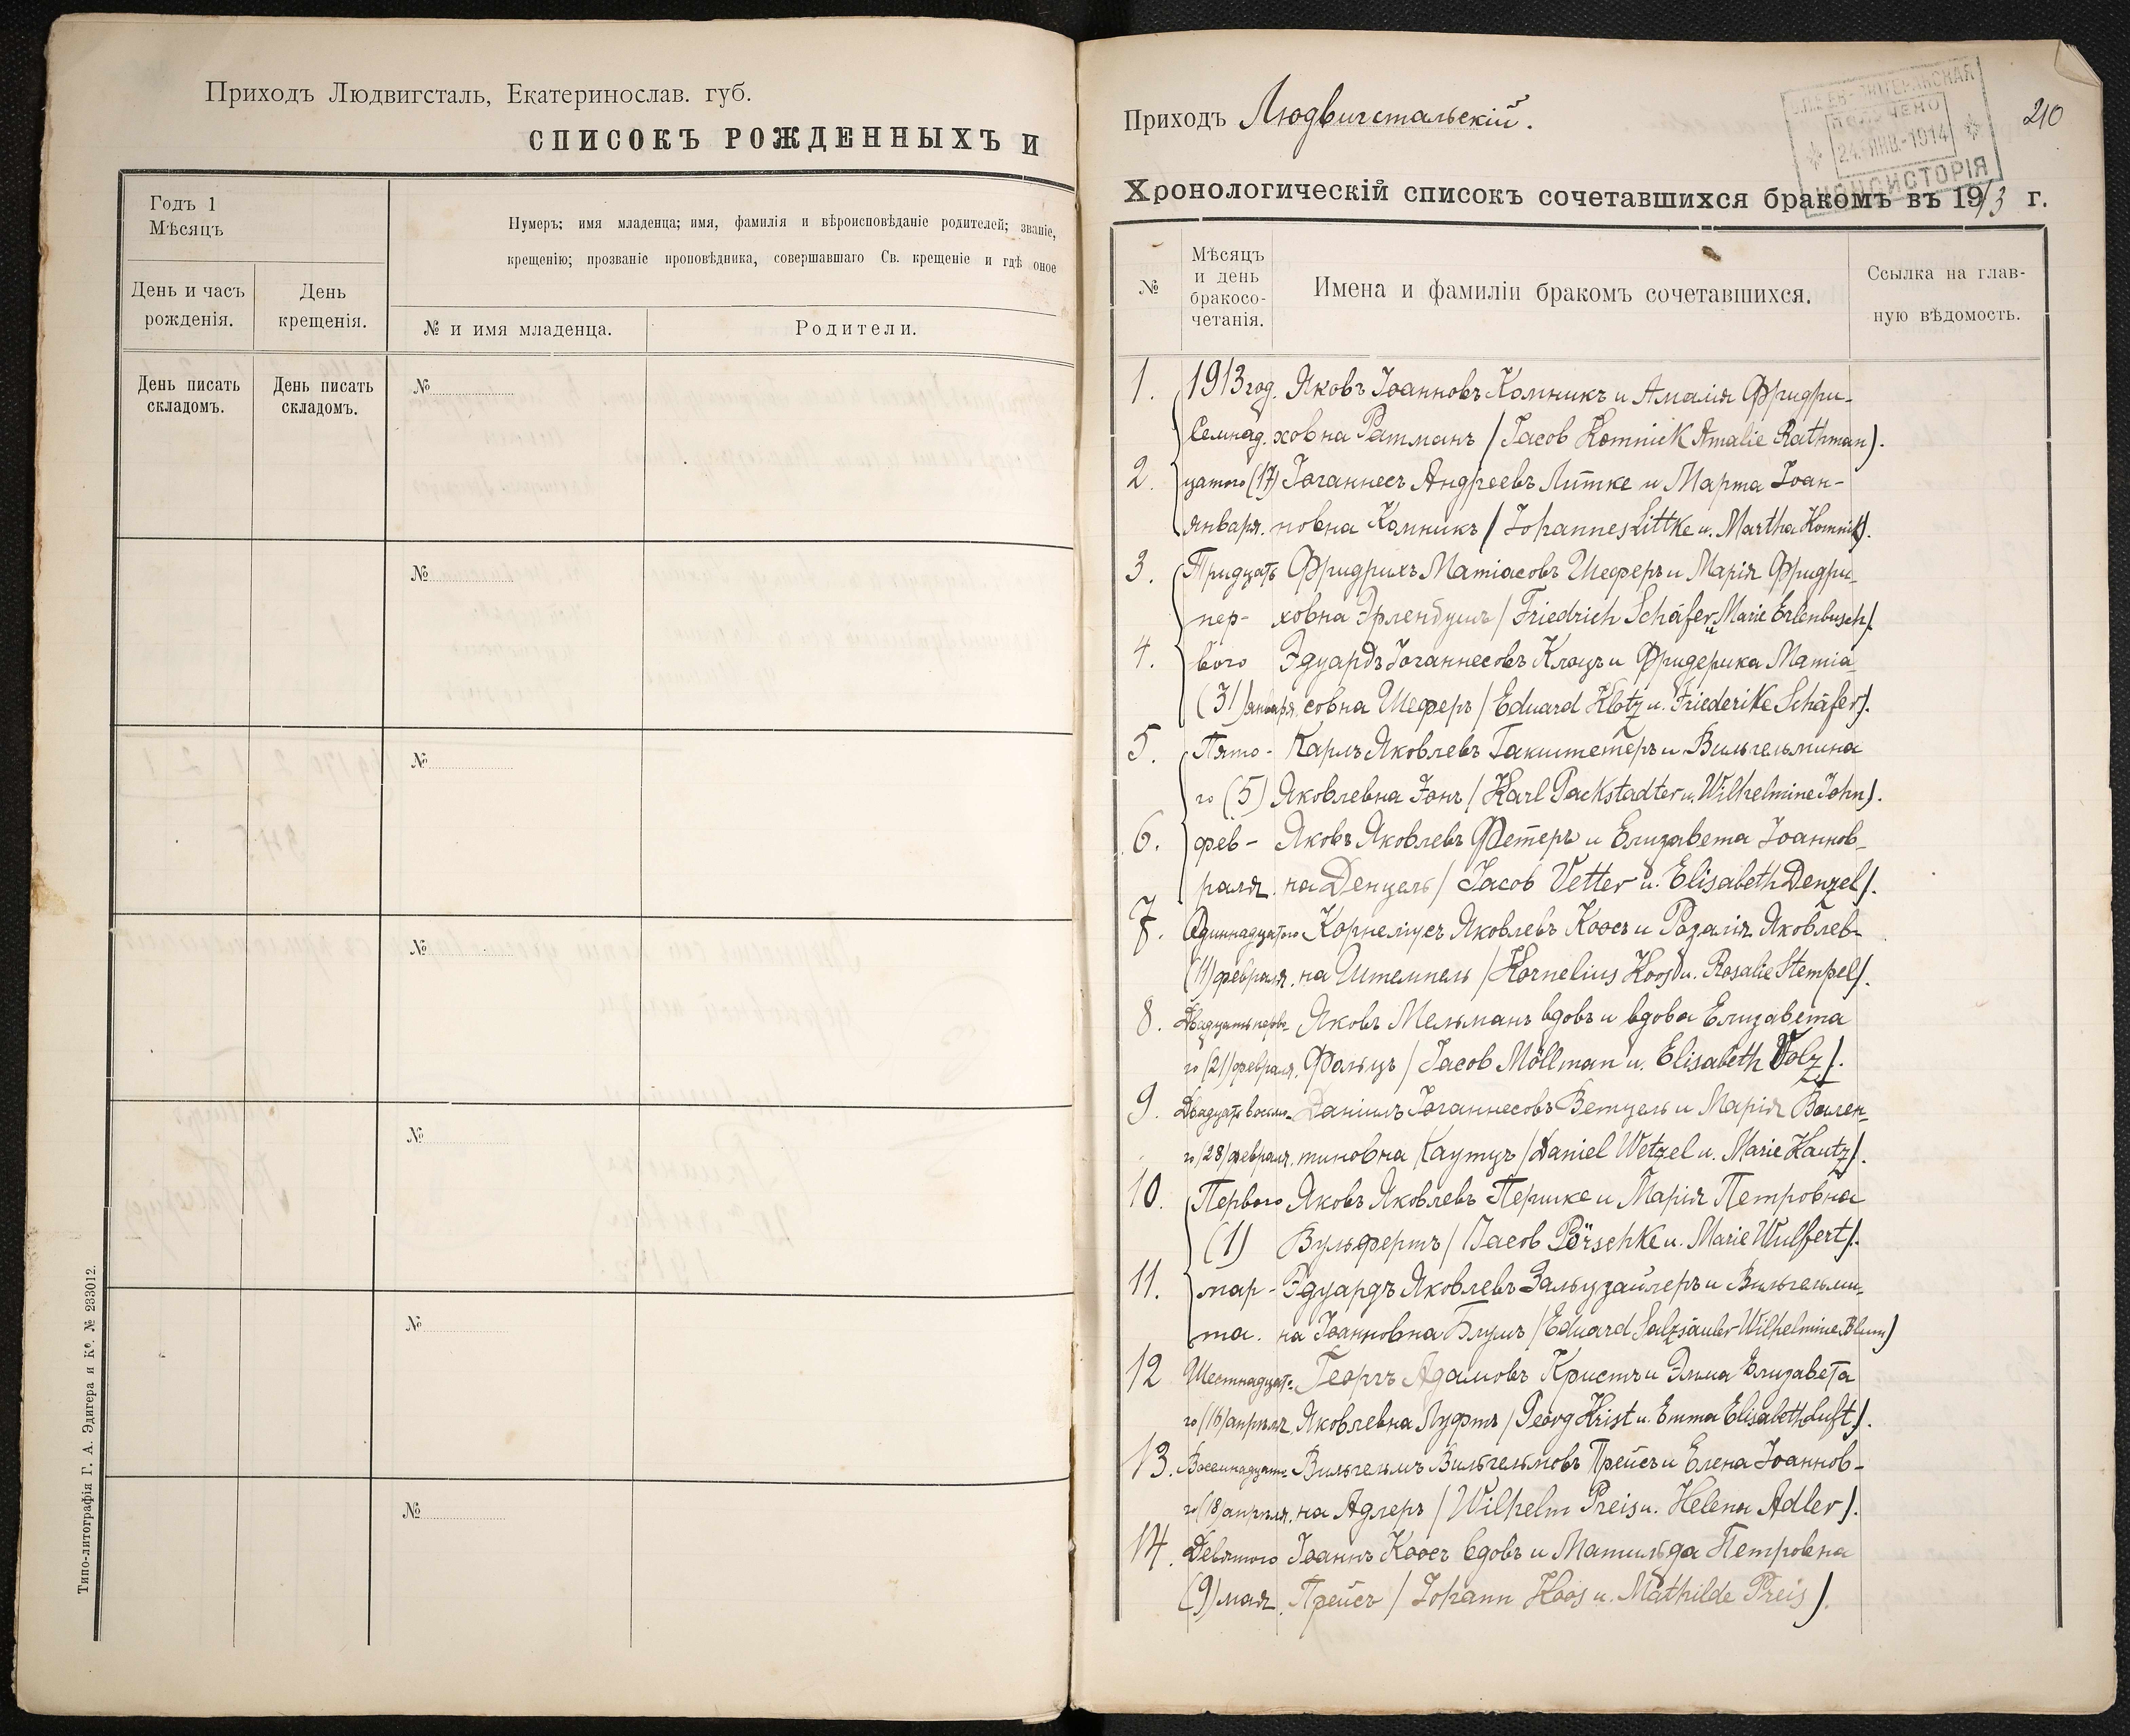 Приходъ Людвигсталь, Екатеринослав. губ.
СПИСОКЪ РОЖДЕННЫХЪ И
Годъ 1
Мѣсяцъ
Нумеръ: имя младенца; имя, фамилія и вѣроисповѣданіе родителей; званіе,
крещенію; прозваніе проповѣдника, совершавшаго Св. крещеніе и гдѣ оное
День и часъ рожденія.
День крещенія.
№ и имя младенца.
Родители.
День писать складомъ.
День писать складомъ.
№
№
№
№
№
№
№
Типо-литографія Г. А. Эдигера и Кº. № 233012.
Приходъ Людвигстальскій.
210
ПОЛУЧЕНО
24. ЯНВ. 1914
КОНСИСТОРІЯ
Хронологическій списокъ сочетавшихся бракомъ въ 1913 г.
№
Мѣсяцъ и день бракосо-четанія.
Имена и фамиліи бракомъ сочетавшихся.
Ссылка на глав-ную вѣдомость.
1. 1913 год. Яковъ Іоанновъ Комникъ и Амалія Фридри-
Семнад. ховна Ратманъ (Jacob Komnick Amalie Rathman).
2. цатого (17) Іоганнесъ Андреевъ Литке и Марта Іоан-
января. новна Комникъ (Johannes Littke u. Martha Komnik).
3. Тридцать Фридрихъ Матіасовъ Шеферъ и Марія Фридри-
пер- ховна Эрленбушъ (Friedrich Schäfer u Marie Erlenbusch).
4. вого Эдуардъ Іоганнесовъ Клоцъ и Фридерика Матіа-
(31) января. совна Шеферъ (Eduard Klotz u. Friederike Schäfer).
5. Пято- Карлъ Яковлевъ Пакштетеръ и Вильгельмина
го (5) Яковлевна Іонъ (Karl Packstadter u. Wilhelmine John).
6. фев- Яковъ Яковлевъ Фетеръ и Елизавета Іоаннов-
раля. на Денцель (Jacob Vetter u. Elisabeth Denzel).
7. Одиннадцатого Корнеліусъ Яковлевъ Коосъ и Розалія Яковлев-
(11) февраля. на Штемпель (Kornelius Koos u. Rosalie Stempel).
8. Двадцать перво- Яковъ Мельманъ вдовъ и вдова Елизавета
го (21) февраля. Фольцъ (Jacob Möllman u. Elisabeth Volz).
9. Двадцать восьмо- Даніилъ Іоганнесовъ Ветцель и Марія Вален-
го (28) февраля. тиновна Каутцъ (Daniel Wetzel u. Marie Kautz).
10. Первого Яковъ Яковлевъ Першке и Марія Петровна
(1) Вульфертъ (Jacob Pörschke u. Marie Wulfert).
11. мар- Эдуардъ Яковлевъ Зальцзайлеръ и Вильгельми-
та. на Іоанновна Блумъ (Eduard Salzsäuler Wilhelmine Blum)
12 Шестнадцато- Георгъ Адамовъ Кристъ и Эмма Елизавета
го (16) апрѣля. Яковлевна Луфтъ (Georg Krist u. Emma Elisabeth Luft).
13. Восемнадцато- Вильгельмъ Вильгельмовъ Прейсъ и Елена Іоаннов-
го (18) апрѣля. на Адлеръ (Wilhelm Preis u. Helena Adler).
14. Девятого Іоаннъ Коосъ вдовъ и Матильда Петровна
(9) мая. Прейсъ (Johann Koos u. Mathilde Preis).